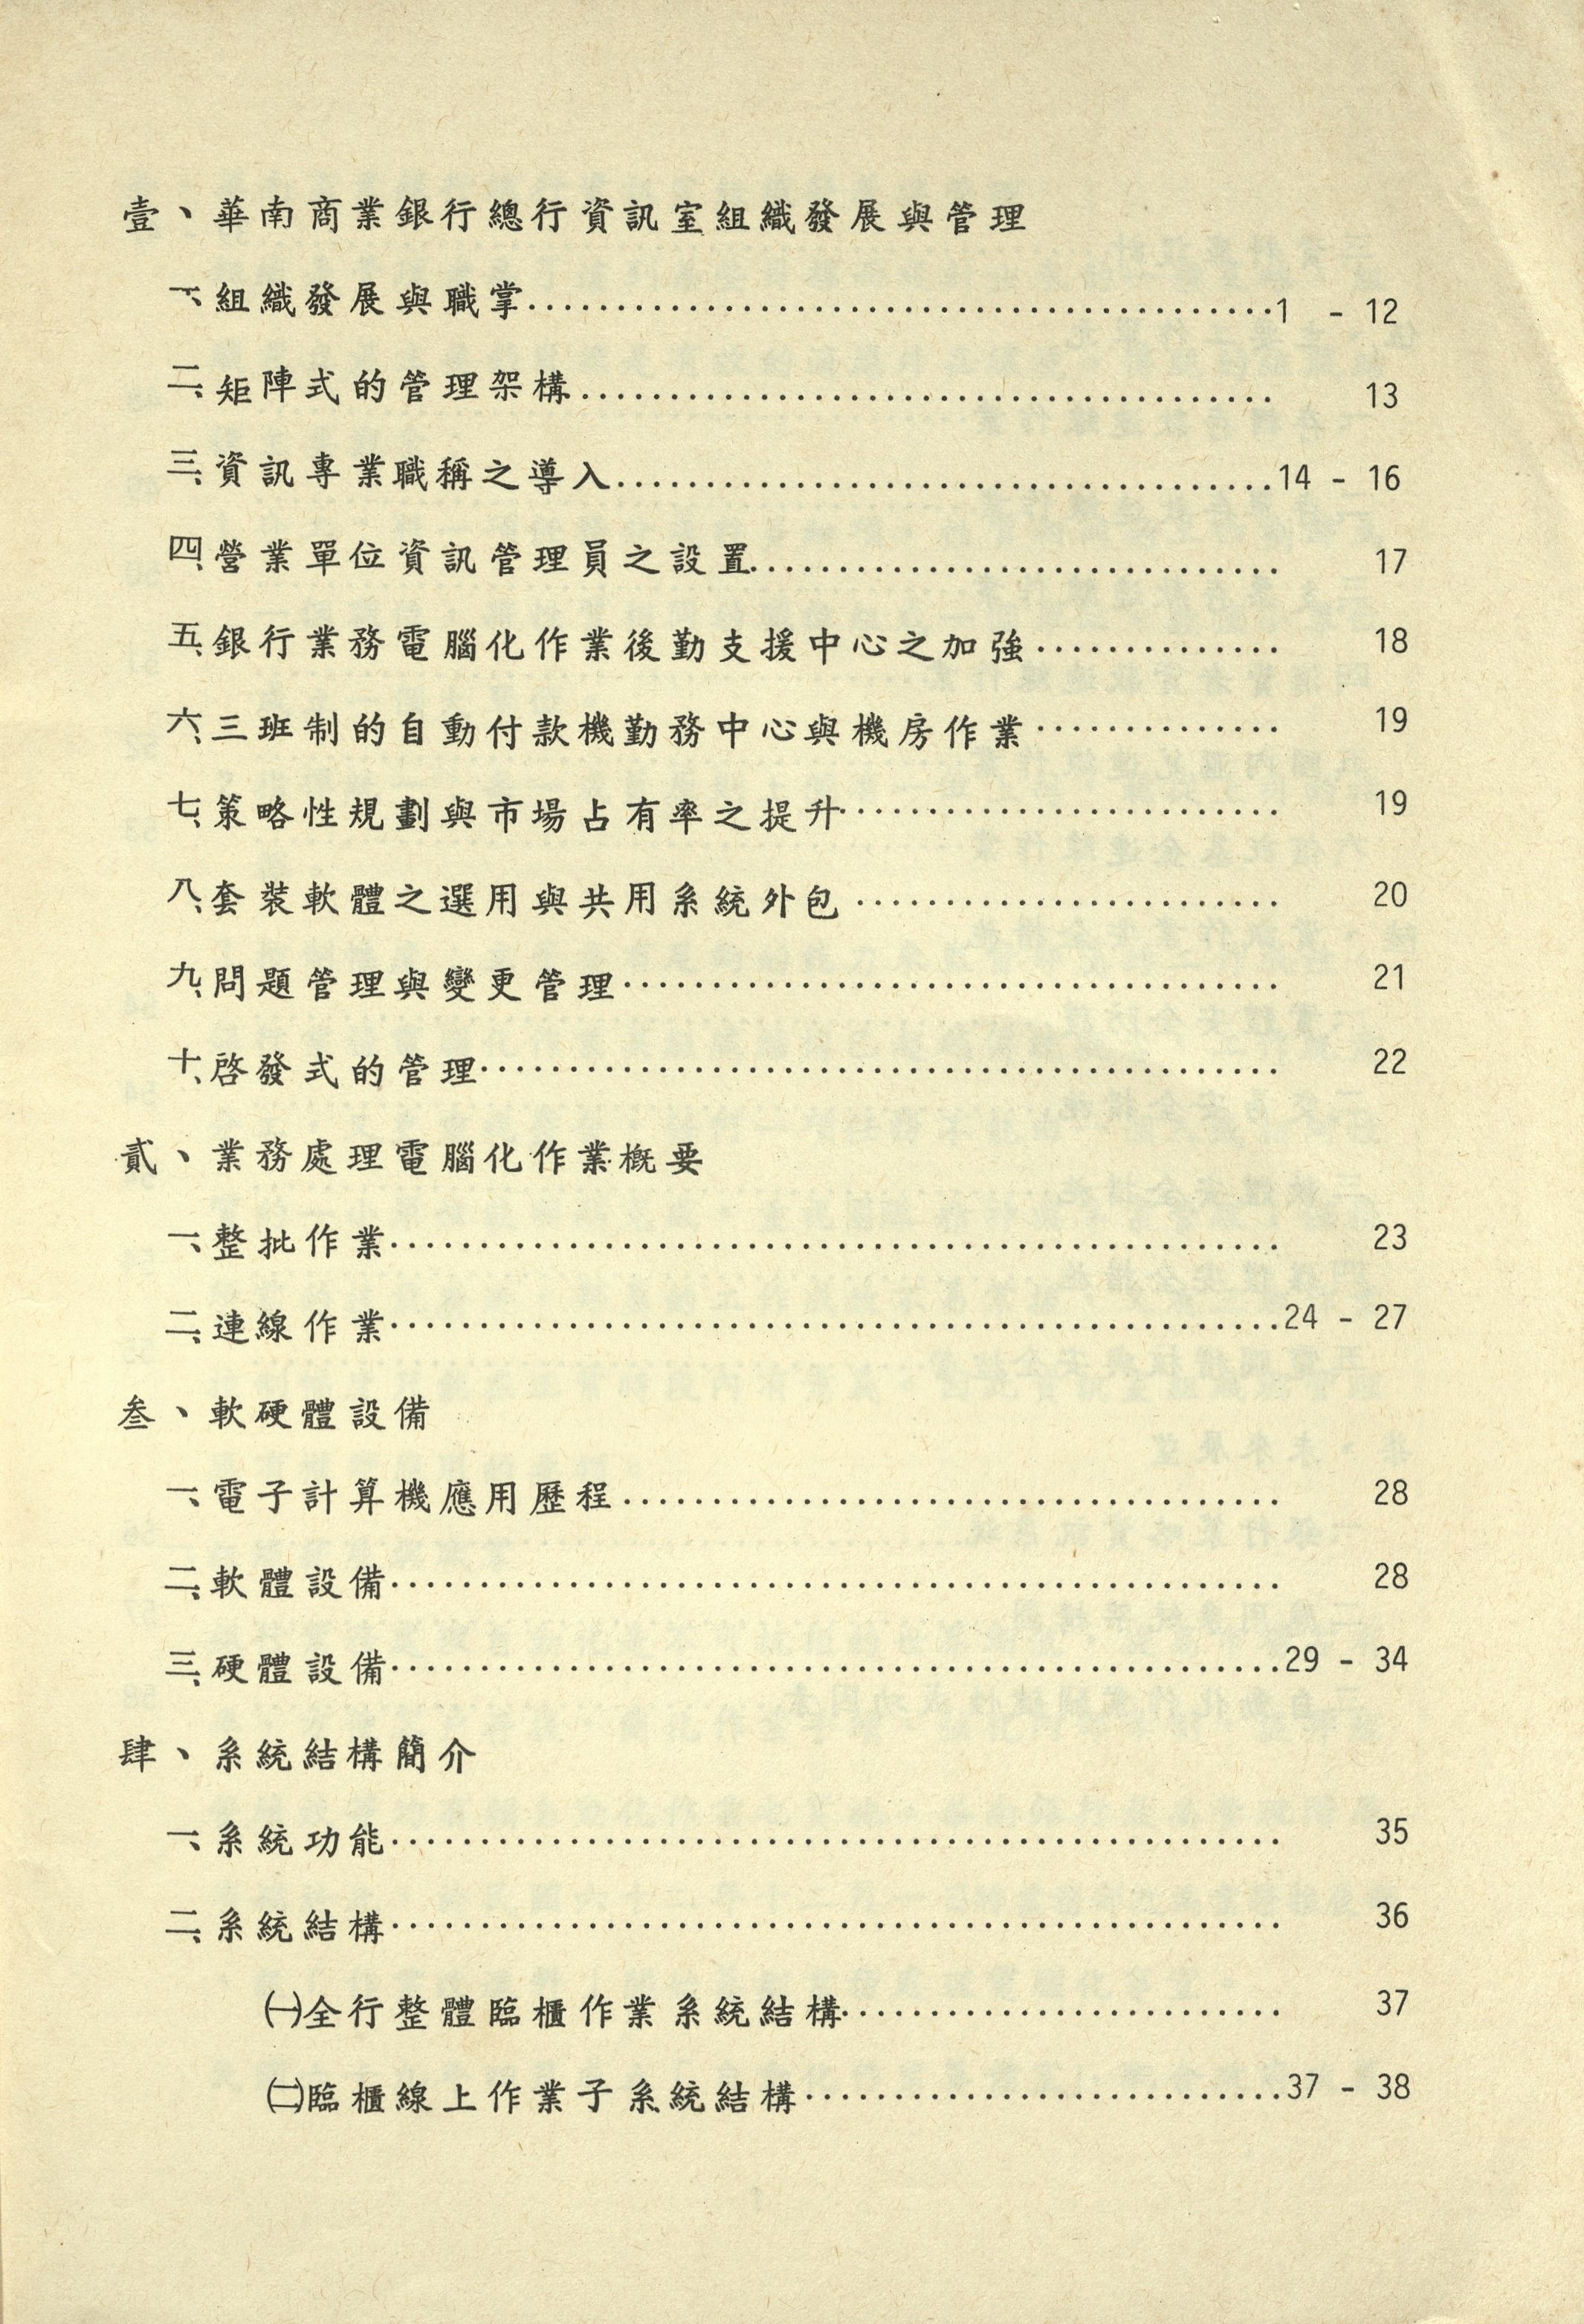 壹、華南商業銀行總行資訊室組織發展與管理
一、組織發展與職掌................................................1 - 12
二、矩陣式的管理架構................................................13
三、資訊專業職稱之導入................................................14 - 16
四、營業單位資訊管理員之設置................................................17
五、銀行業務電腦化作業後勤支援中心之加強................................................18
六、三班制的自動付款機勤務中心與機房作業................................................19
七、策略性規劃與市場占有率之提升................................................19
八、套裝軟體之選用與共用系統外包................................................20
九、問題管理與變更管理................................................21
十、啓發式的管理................................................22
貳、業務處理電腦化作業概要
一、整批作業................................................23
二、連線作業................................................24 - 27
叁、軟硬體設備
一、電子計算機應用歷程................................................28
二、軟體設備................................................28
三、硬體設備................................................29 - 34
肆、系統結構簡介
一、系統功能................................................35
二、系統結構................................................36
㈠全行整體臨櫃作業系統結構................................................37
㈡臨櫃線上作業子系統結構................................................37 - 38